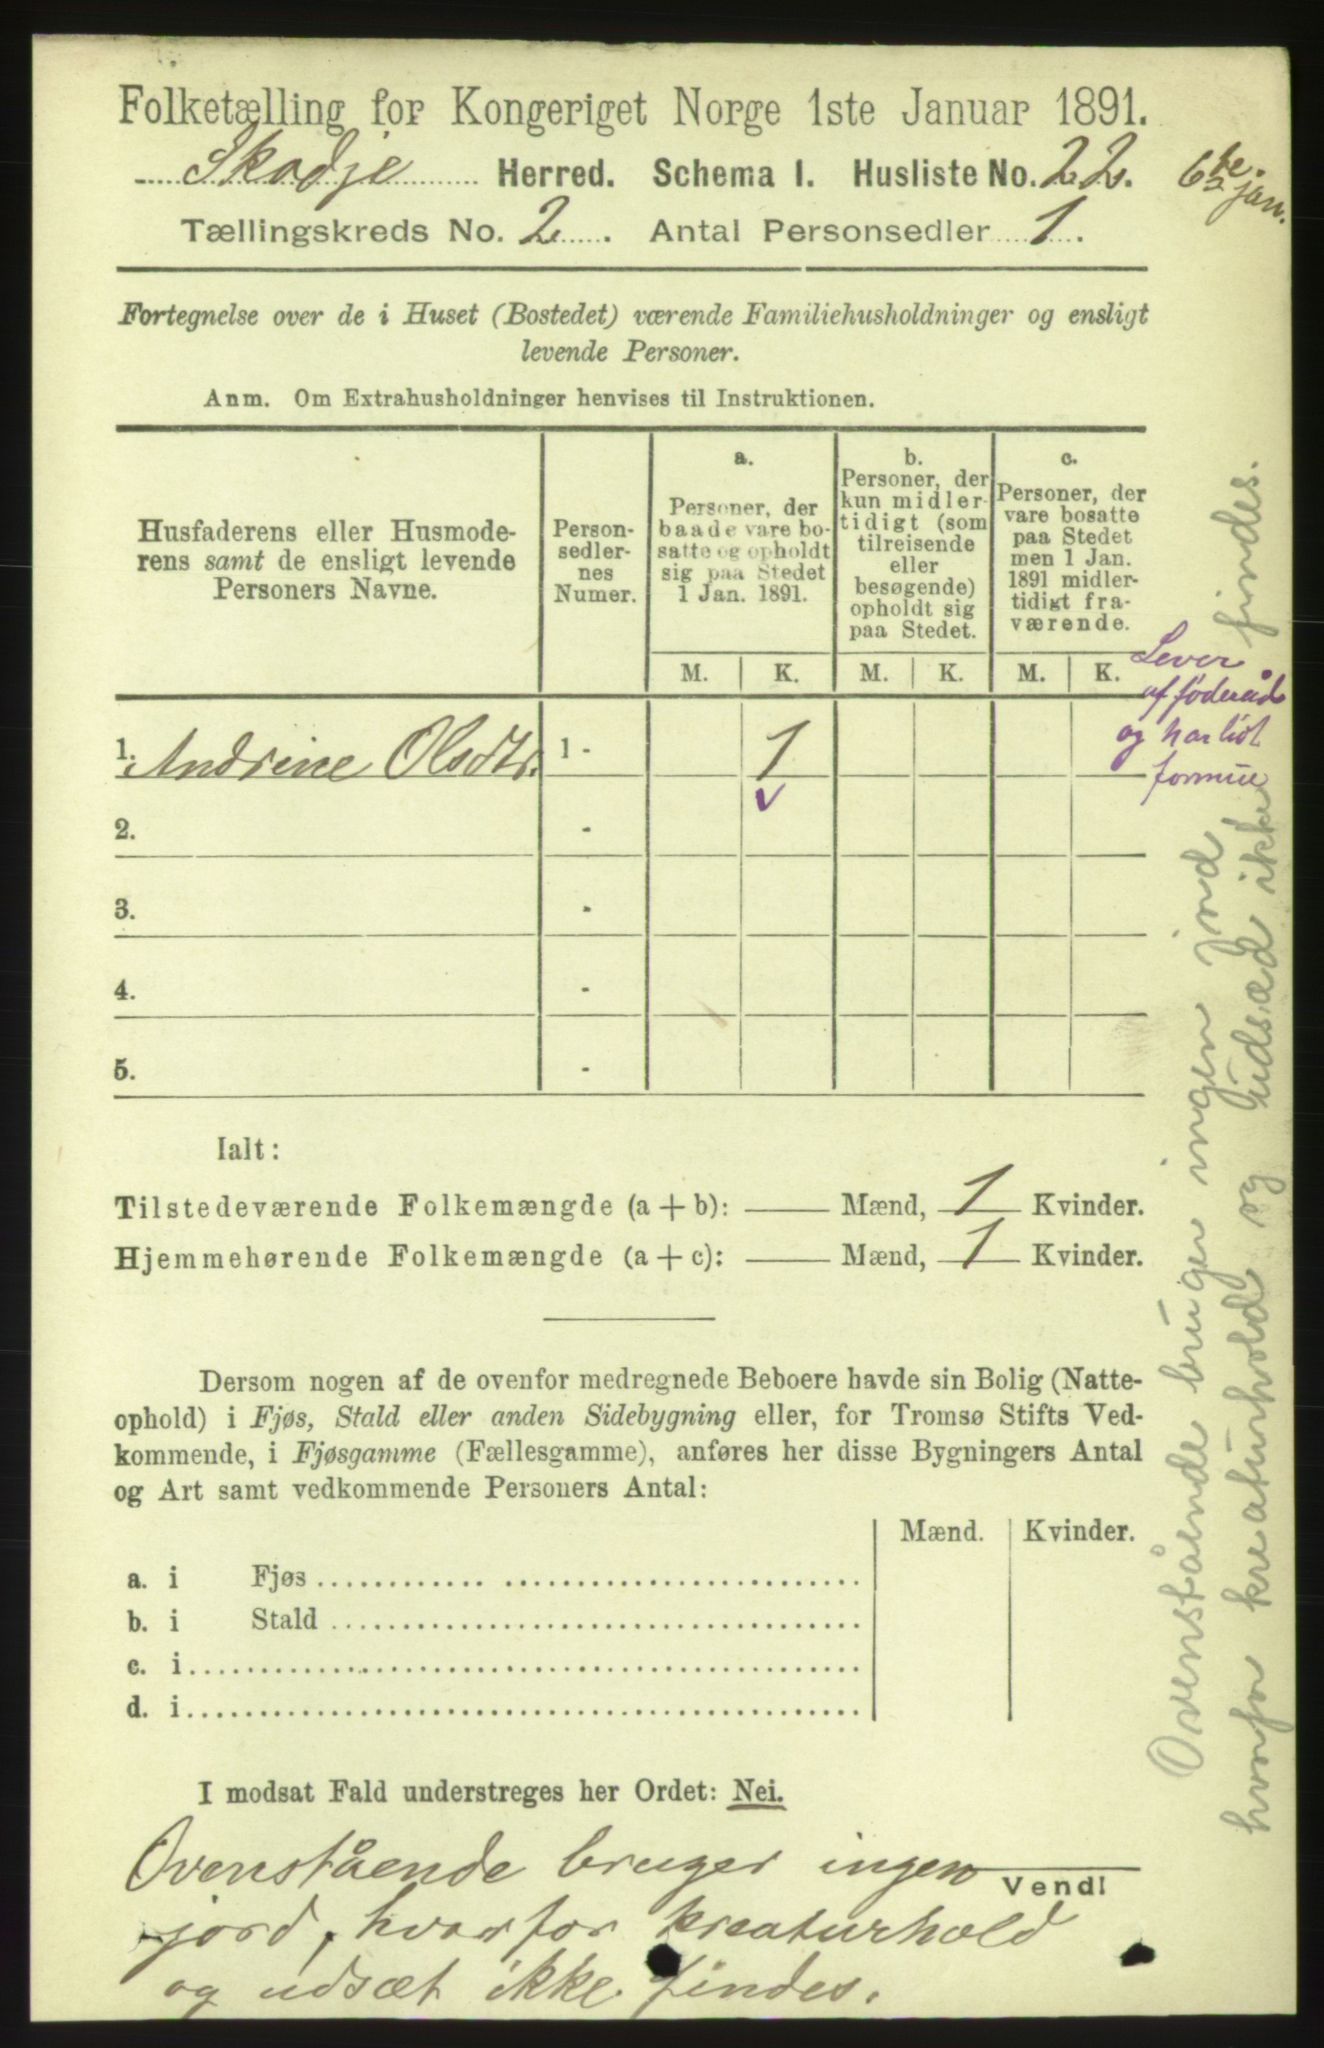 Folketælling for Kongeriget Norge 1ste Januar 1891.
Skodje Herred. Schema I. Husliste No. 22.
6te jan.
Tællingskreds No. 2. Antal Personsedler 1.
Fortegnelse over de i Huset (Bostedet) værende Familiehusholdninger og ensligt
levende Personer.
Anm. Om Extrahusholdninger henvises til Instruktionen.
Husfaderens eller Husmode-
rens samt de ensligt levende
Personers Navne.
Person-
sedler-
nes
Numer.
a.
Personer, der
baade vare bo-
satte og opholdt
sig paa Stedet
1 Jan. 1891.
b.
Personer, der
kun midler-
tidigt (som
tilreisende
eller
besøgende)
opholdt sig
paa Stedet.
c.
Personer, der
vare bosatte
paa Stedet
men 1 Jan.
1891 midler-
tidigt fra-
værende.
M. K. M. K. M. K.
1. Andrine Olsdtr. 1 - 1
Lever
af føderåd
og har lidt
formue
2. -
3. -
4. -
5. -
Ialt:
Tilstedeværende Folkemængde (a + b): — Mænd, 1 Kvinder.
Hjemmehørende Folkemængde (a + c): — Mænd, 1 Kvinder.
Dersom nogen af de ovenfor medregnede Beboere havde sin Bolig (Natte-
ophold) i Fjøs, Stald eller anden Sidebygning eller, for Tromsø Stifts Ved-
kommende, i Fjøsgamme (Fællesgamme), anføres her disse Bygningers Antal
og Art samt vedkommende Personers Antal:
Mænd. Kvinder.
a. i Fjøs
b. i Stald
c. i
d. i
I modsat Fald understreges her Ordet: Nei.
Vend!
Ovenstående bruger ingen
jord, hvorfor kreaturhold
og udsæt ikke findes.
Ovenstående bruger ingen jord
hvorfor kreaturhold og udsæd ikke findes.